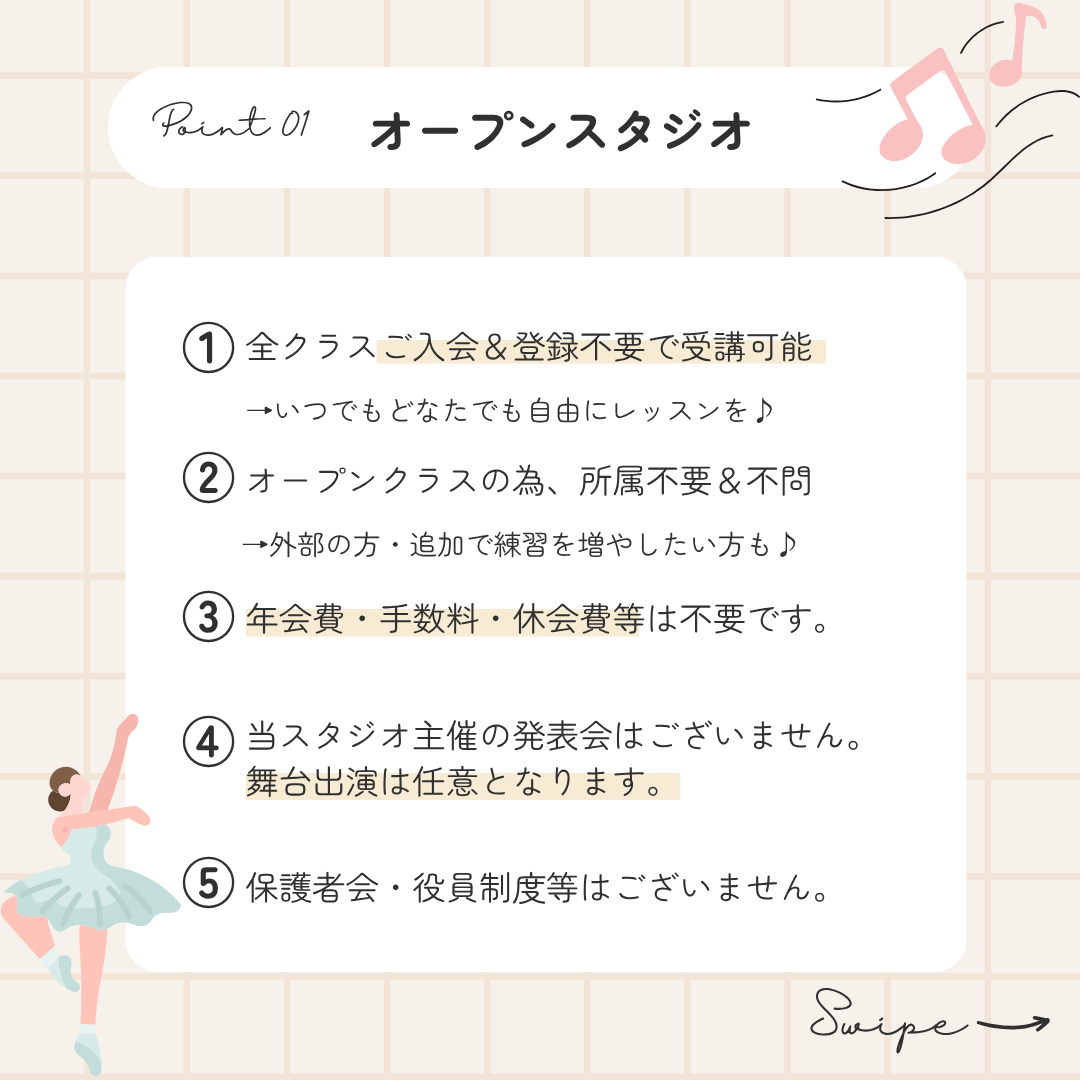 Point 01 オープンスタジオ
① 全クラスご入会＆登録不要で受講可能
→いつでもどなたでも自由にレッスンを♪
② オープンクラスの為、所属不要＆不問
→外部の方・追加で練習を増やしたい方も♪
③ 年会費・手数料・休会費等は不要です。
④ 当スタジオ主催の発表会はございません。
舞台出演は任意となります。
⑤ 保護者会・役員制度等はございません。
Swipe →